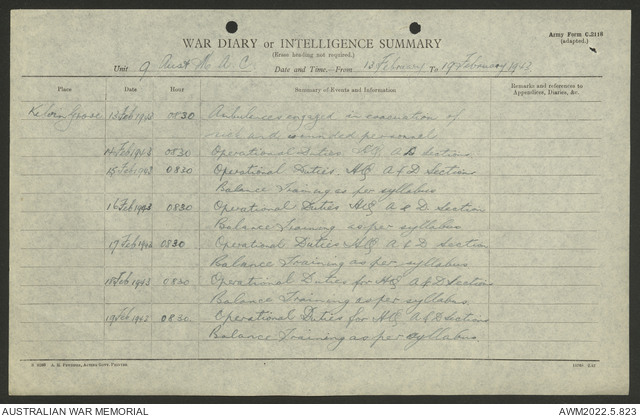 Army Form C.2118
(adapted.)
WAR DIARY or INTELLIGENCE SUMMARY
(Erase heading not required.)
Unit 9 Aust M. A. C. Date and Time.—From 13 February To 19 February 1943
Place Date Hour Summary of Events and Information Remarks and references to
Appendices, Diaries, &c.
13 Feb 1943 0830 Ambulances engaged in evacuation of
sick and wounded personnel
14 Feb 1943 0830 Operational Duties. A D Sections
15 Feb 1943 0830 Operational Duties. HQ A & D Sections
Balance Training as per syllabus
16 Feb 1943 0830 Operational Duties HQ A & D Section
Balance Training as per syllabus
17 Feb 1943 0830 Operational Duties HQ A & D Section
Balance Training as per syllabus
18 Feb 1943 0830 Operational Duties for HQ A & D Sections
Balance Training as per syllabus
19 Feb 1943 0830 Operational Duties for HQ A & D Sections
Balance Training as per syllabus
AUSTRALIAN WAR MEMORIAL AWM2022.5.823